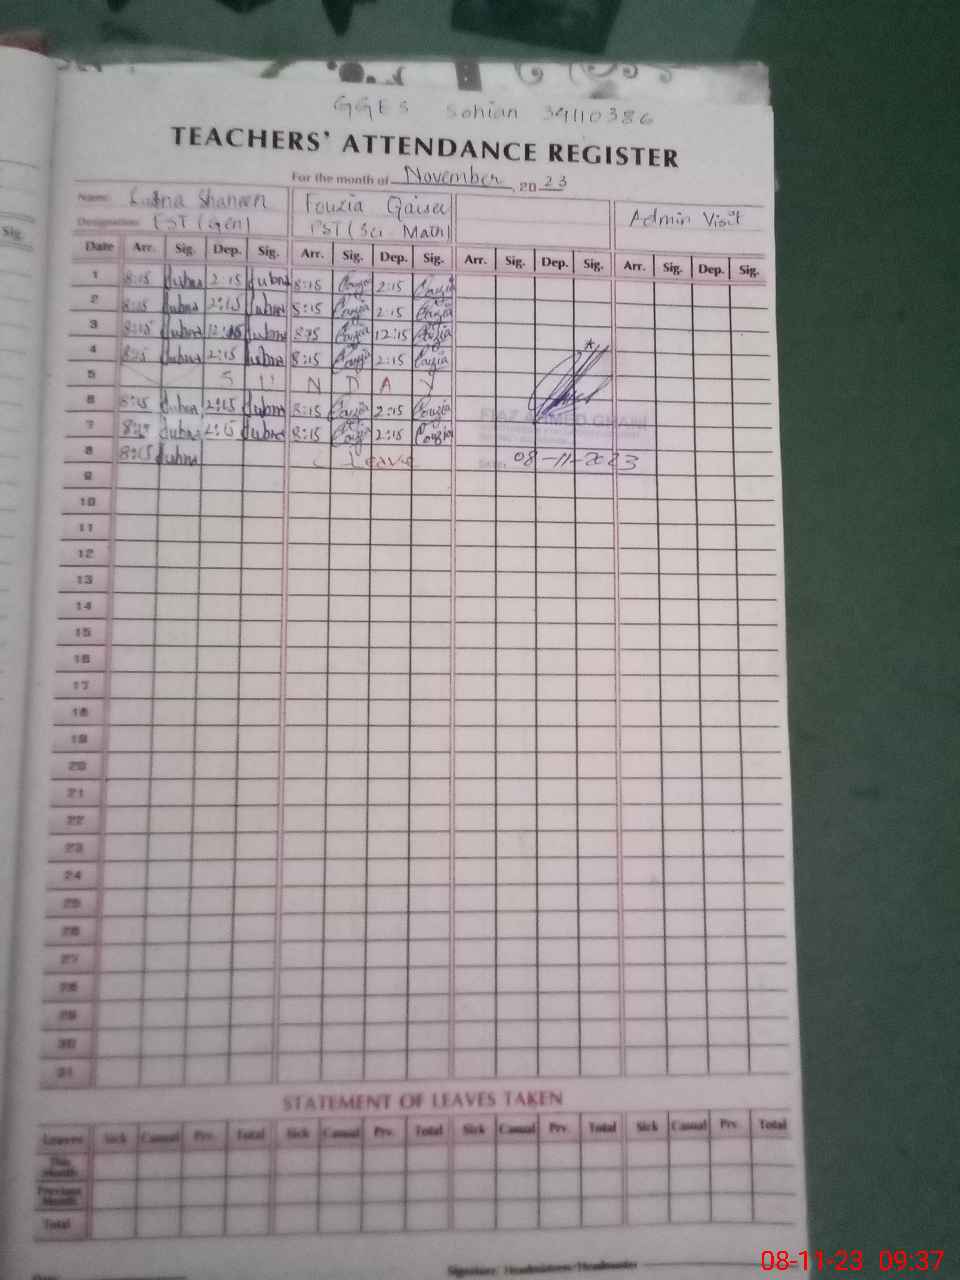 GGES Sohian 34110386
TEACHERS' ATTENDANCE REGISTER
For the month of November, 2023
Name: Lubna Shaheen Fouzia Qaiser
Designation: EST (Gen) PST (Sci. Math) Admin Visit
Sig.
Date Arr. Sig. Dep. Sig. Arr. Sig. Dep. Sig. Arr. Sig. Dep. Sig. Arr. Sig. Dep. Sig.
1 8:15 Lubna 2:15 Lubna 8:15 Fouzia 2:15 Fouzia
2 8:15 Lubna 2:15 Lubna 8:15 Fouzia 2:15 Fouzia
3 8:15 Lubna 12:15 Lubna 8:15 Fouzia 12:15 Fouzia
4 8:15 Lubna 2:15 Lubna 8:15 Fouzia 2:15 Fouzia
5 S U N D A Y
6 8:15 Lubna 2:15 Lubna 8:15 Fouzia 2:15 Fouzia
FIAZ AHMED GHANI
7 8:15 Lubna 2:15 Lubna 8:15 Fouzia 2:15 Fouzia
8 8:15 Lubna Leave Date: 08-11-2023
9
10
11
12
13
14
15
16
17
18
19
20
21
22
23
24
25
26
27
28
29
30
31
STATEMENT OF LEAVES TAKEN
Leaves Sick Casual Prv. Total Sick Casual Prv. Total Sick Casual Prv. Total Sick Casual Prv. Total
This Month
Previous Month
Total
Signature: Headmistress/Headmaster
08-11-23 09:37